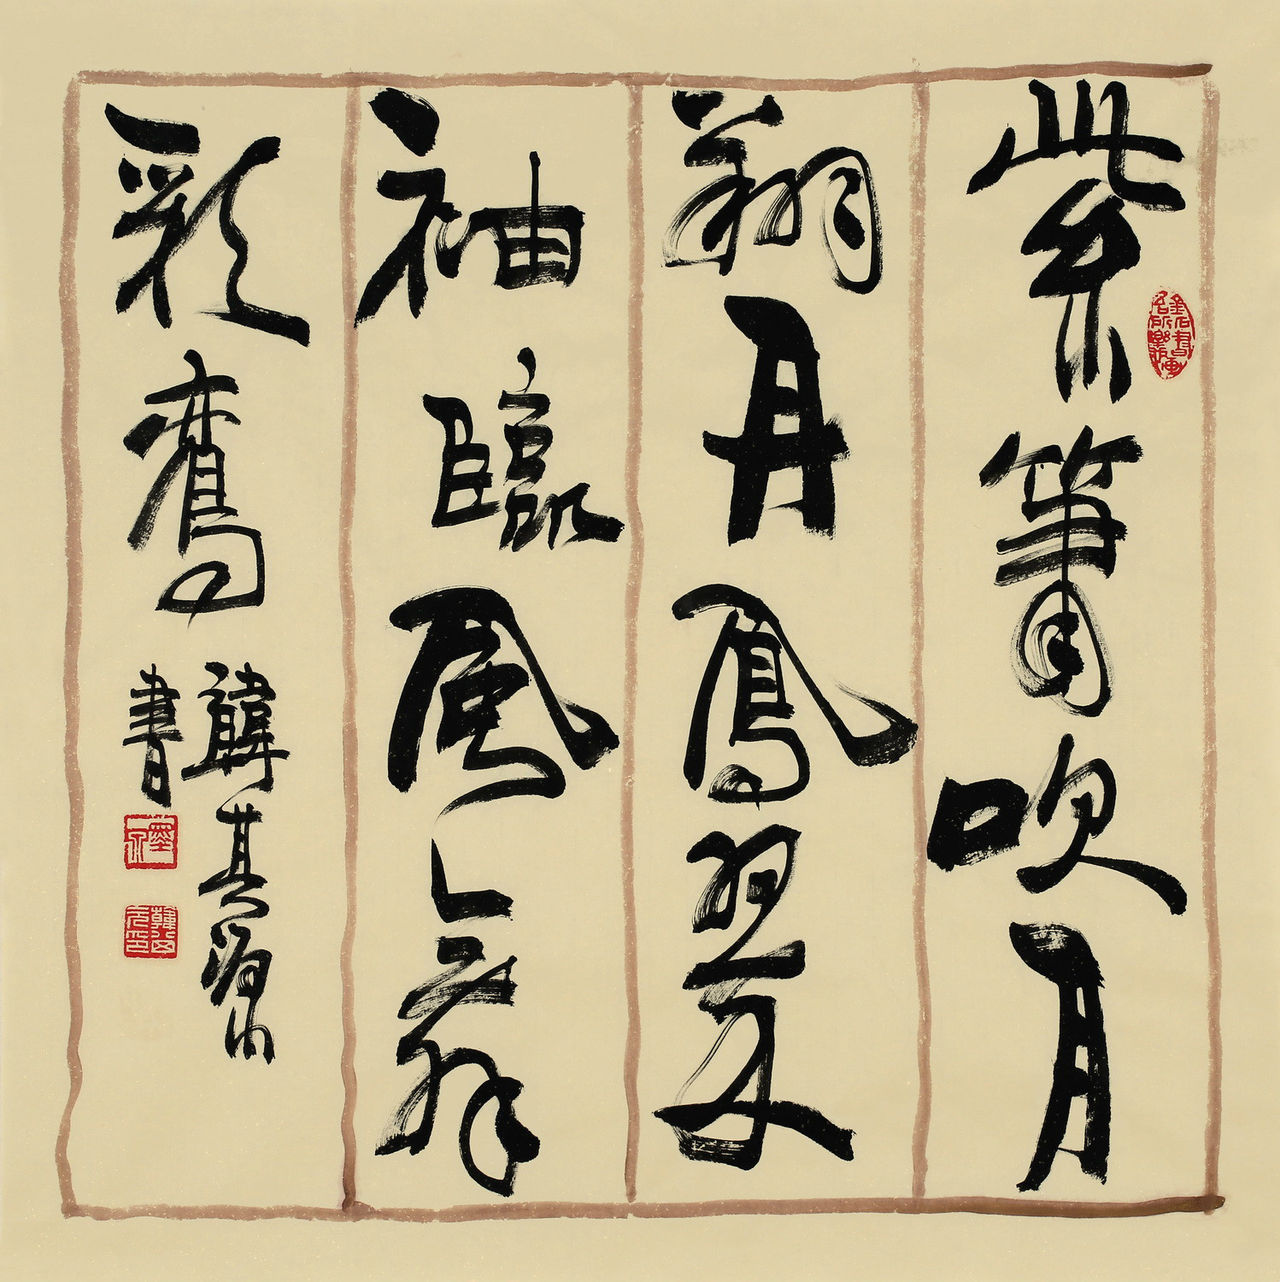 紫簫吹月
翔丹鳳翠
袖臨風舞
彩鸞
韓其
書